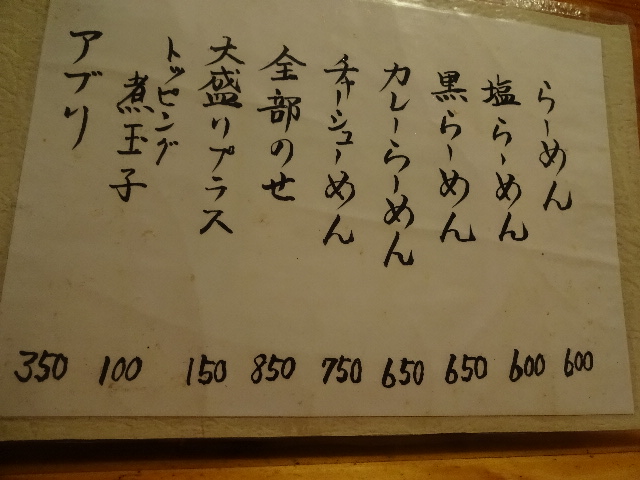 らーめん 600
塩らーめん 600
黒らーめん 650
カレーらーめん 650
チャーシューめん 750
全部のせ 850
大盛りプラス 150
トッピング
煮玉子 100
アブリ 350